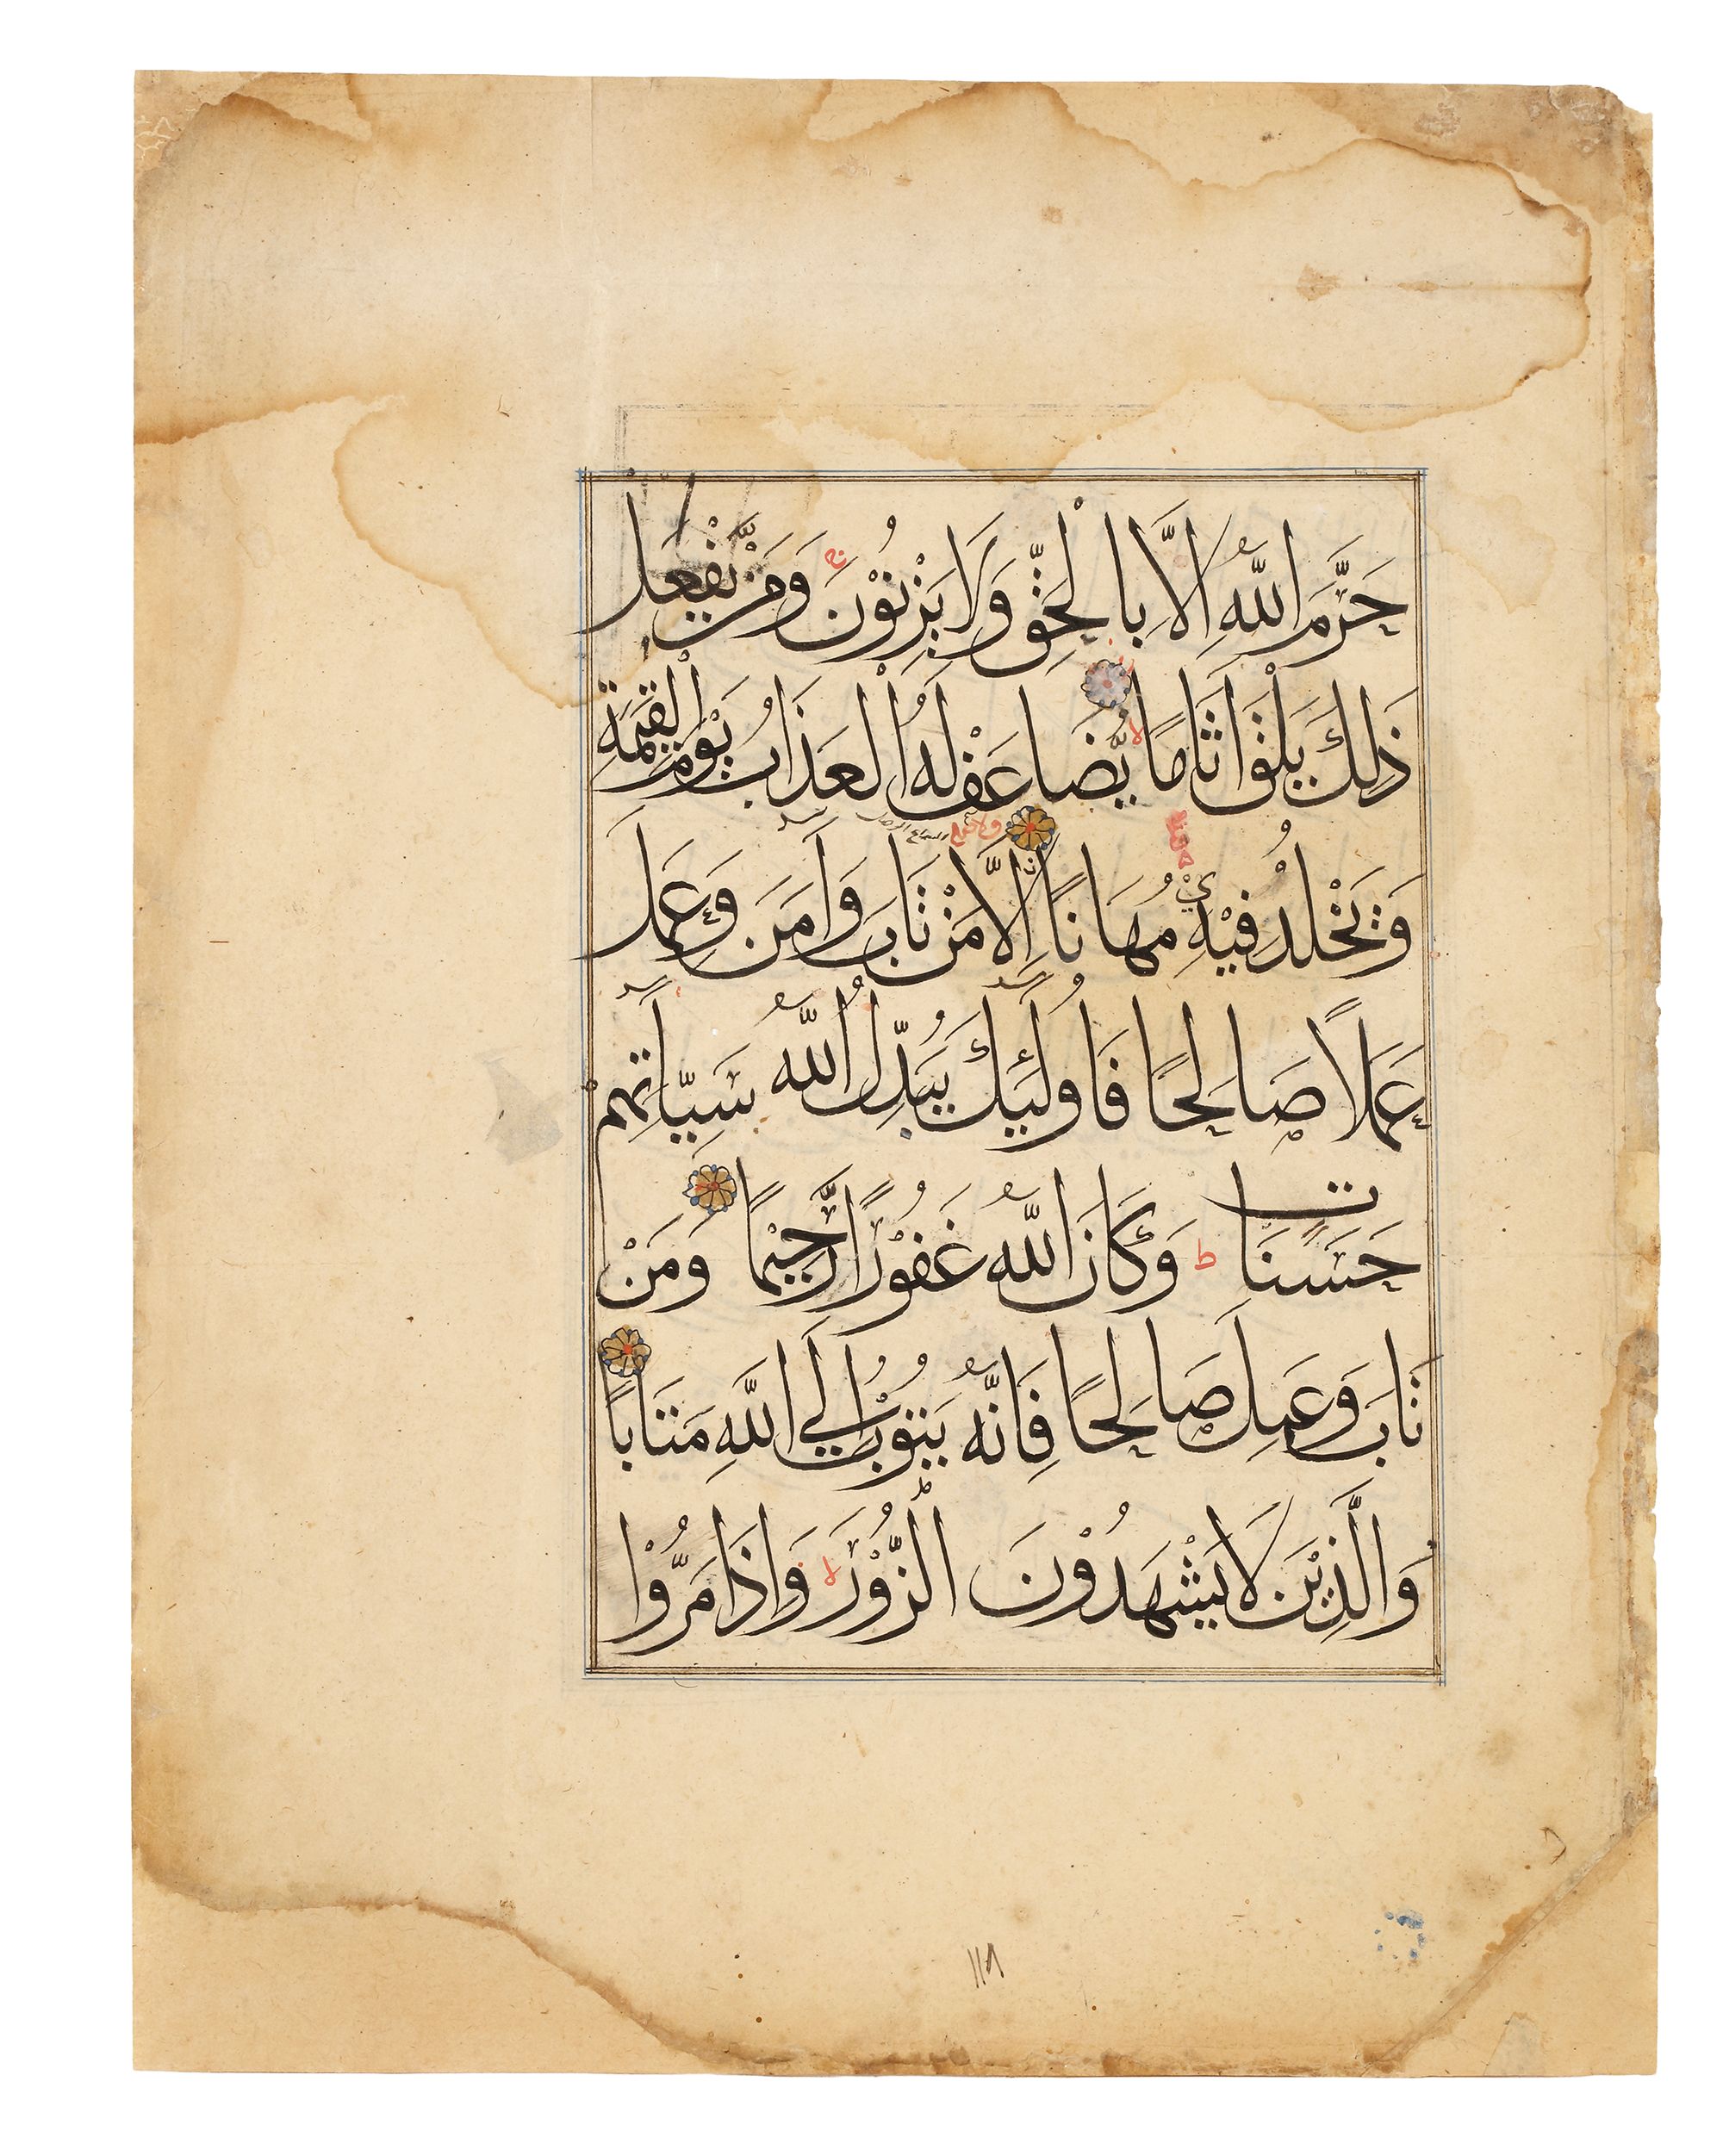 حَرَّمَ اللّٰهُ اِلَّا بِالْحَقِّ وَلَا يَزْنُوْنَ ج وَمَنْ يَّفْعَلْ
ذٰلِكَ يَلْقَ اَثَامًا لا يُّضَاعَفْ لَهُ الْعَذَابُ يَوْمَ الْقِيٰمَةِ
وَيَخْلُدْ فِيْهٖ مُهَانًا اِلَّا مَنْ تَابَ وَاٰمَنَ وَعَمِلَ
عَمَلًا صَالِحًا فَاُولٰۤئِكَ يُبَدِّلُ اللّٰهُ سَيِّاٰتِهِمْ
حَسَنَاتٍ ط وَكَانَ اللّٰهُ غَفُوْرًا رَّحِيْمًا وَمَنْ
تَابَ وَعَمِلَ صَالِحًا فَاِنَّهٗ يَتُوْبُ اِلَي اللّٰهِ مَتَابًا
وَالَّذِيْنَ لَا يَشْهَدُوْنَ الزُّوْرَ لا وَاِذَا مَرُّوْا
١١٨